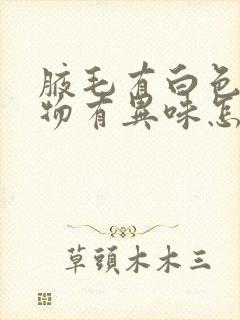 腋毛有白色
物有異味怎
草頭木木三